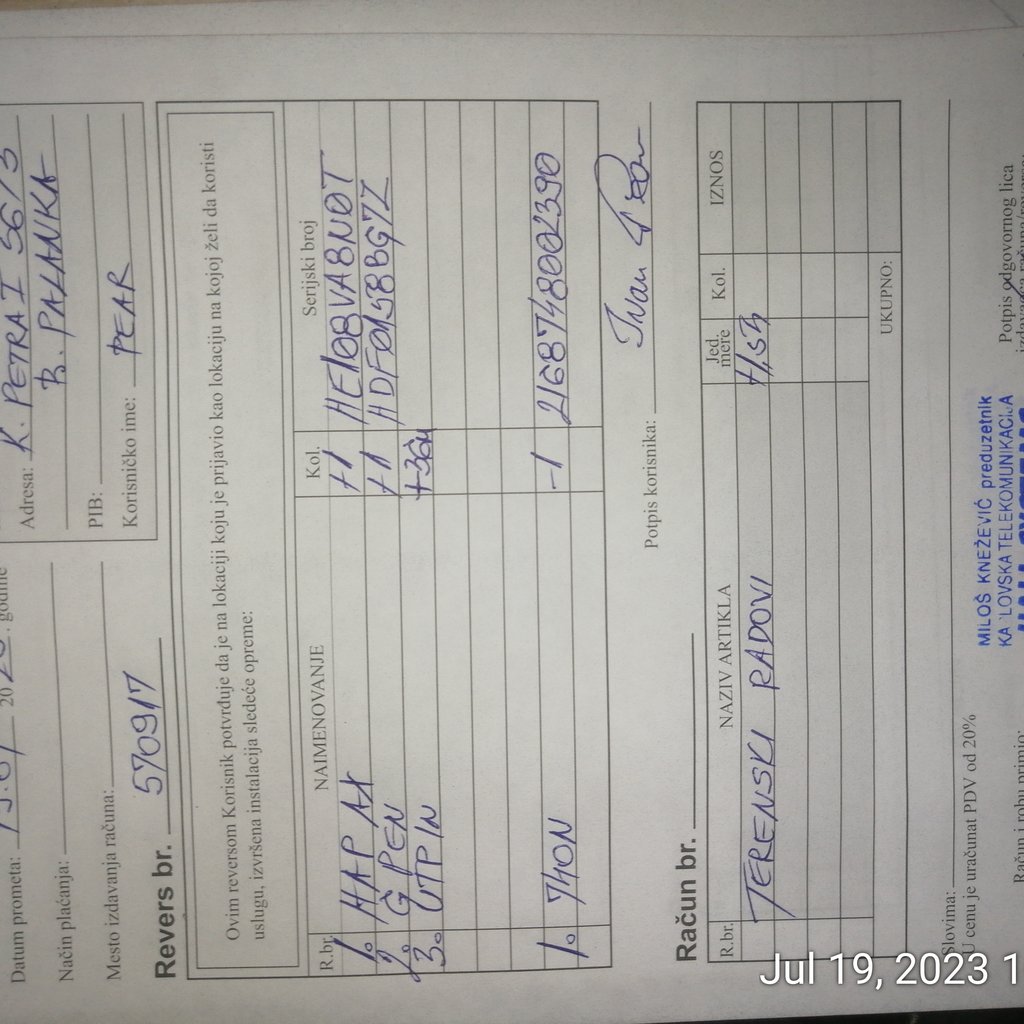 Adresa: K. PETRA I 56/3
B. PALANKA
PIB:
Korisničko ime: PEAR
Datum prometa:
20 godine
Način plaćanja:
Mesto izdavanja računa:
Revers br. 570917
Ovim reversom Korisnik potvrđuje da je na lokaciji koju je prijavio kao lokaciju na kojoj želi da koristi
uslugu, izvršena instalacija sledeće opreme:
R.br. NAIMENOVANJE Kol. Serijski broj
1. HAP AX +1 HE108VA8N0T
2. G PEN +1 HDF0158BG7Z
3. UTP IN +36m
1. 740N -1 2168748002390
Potpis korisnika: Ivan
Račun br.
R.br. NAZIV ARTIKLA Jed. mere Kol. IZNOS
TERENSKI RADOVI
UKUPNO:
Slovima:
U cenu je uračunat PDV od 20%
Račun i robu primio:
Potpis odgovornog lica
MILOŠ KNEŽEVIĆ preduzetnik
KABLOVSKA TELEKOMUNIKACIJA
Jul 19, 2023 1